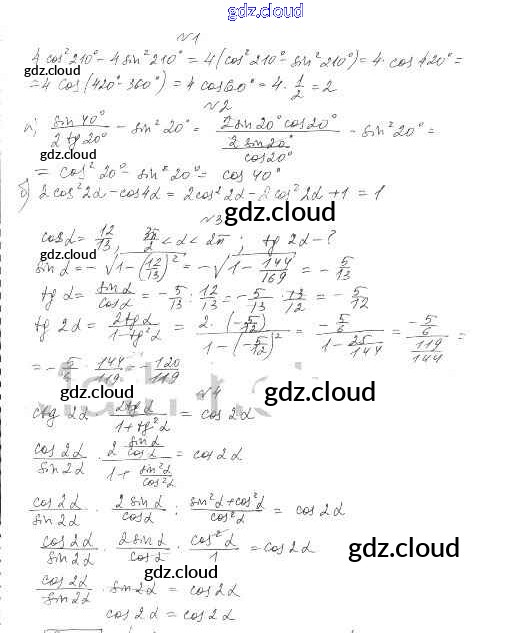 gdz.cloud
N1
4 cos² 210° - 4 sin² 210° = 4 (cos² 210° - sin² 210°) = 4 · cos 420° =
gdz.cloud
= 4 cos (420° - 360°) = 4 cos 60° = 4 · 1/2 = 2
N2
а) sin 40° / 2 tg 20° - sin² 20° = 2 sin 20° cos 20° / (2 sin 20° / cos 20°) - sin² 20° =
gdz.cloud
= cos² 20° - sin² 20° = cos 40°
б) 2 cos² 2α - cos 4α = 2 cos² 2α - 2 cos² 2α + 1 = 1
N3 gdz.cloud
cos α = 12/13, 3π/2 < α < 2π; tg 2α - ?
gdz.cloud
sin α = - √(1 - (12/13)²) = - √(1 - 144/169) = - 5/13
tg α = sin α / cos α = - 5/13 : 12/13 = - 5/13 · 13/12 = - 5/12
tg 2α = 2 tg α / (1 - tg² α) = 2 · (- 5/12) / (1 - (- 5/12)²) = (- 5/6) / (1 - 25/144) = (- 5/6) / (119/144) =
= - 5/6 · 144/119 = - 120/119
N4 gdz.cloud
ctg 2α · 2 tg α / (1 + tg² α) = cos 2α
cos 2α / sin 2α · 2 (sin α / cos α) / (1 + sin² α / cos² α) = cos 2α
cos 2α / sin 2α · 2 sin α / cos α : (sin² α + cos² α) / cos² α = cos 2α
cos 2α / sin 2α · 2 sin α / cos α · cos² α / 1 = cos 2α
gdz.cloud
gdz.cloud
cos 2α / sin 2α · sin 2α = cos 2α
cos 2α = cos 2α